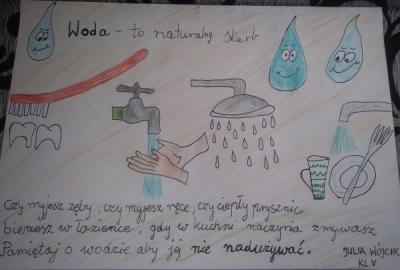 Woda - to naturalny skarb
Czy myjesz zęby, czy myjesz ręce, czy ciepły prysznic
bierzesz w łazience, gdy w kuchni naczynia zmywasz
Pamiętaj o wodzie aby jej nie nadużywać.
JULIA WÓJCIK
KL V